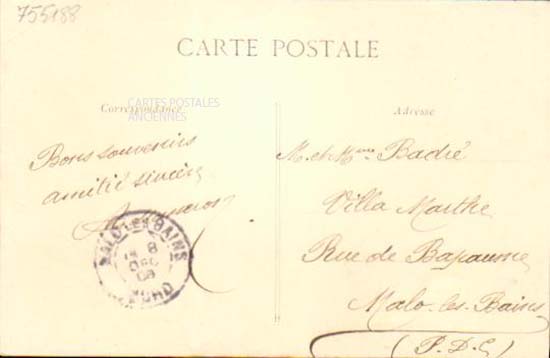 755188
CARTE POSTALE
Correspondance
CARTES POSTALES
ANCIENNES
Adresse
Bons souvenirs
amitié sincère
M. et Mme Badré
Villa Marthe
Rue de Bapaume
Malo-les-Bains
(P.D.C)
MALO-LES-BAINS
8
NORD